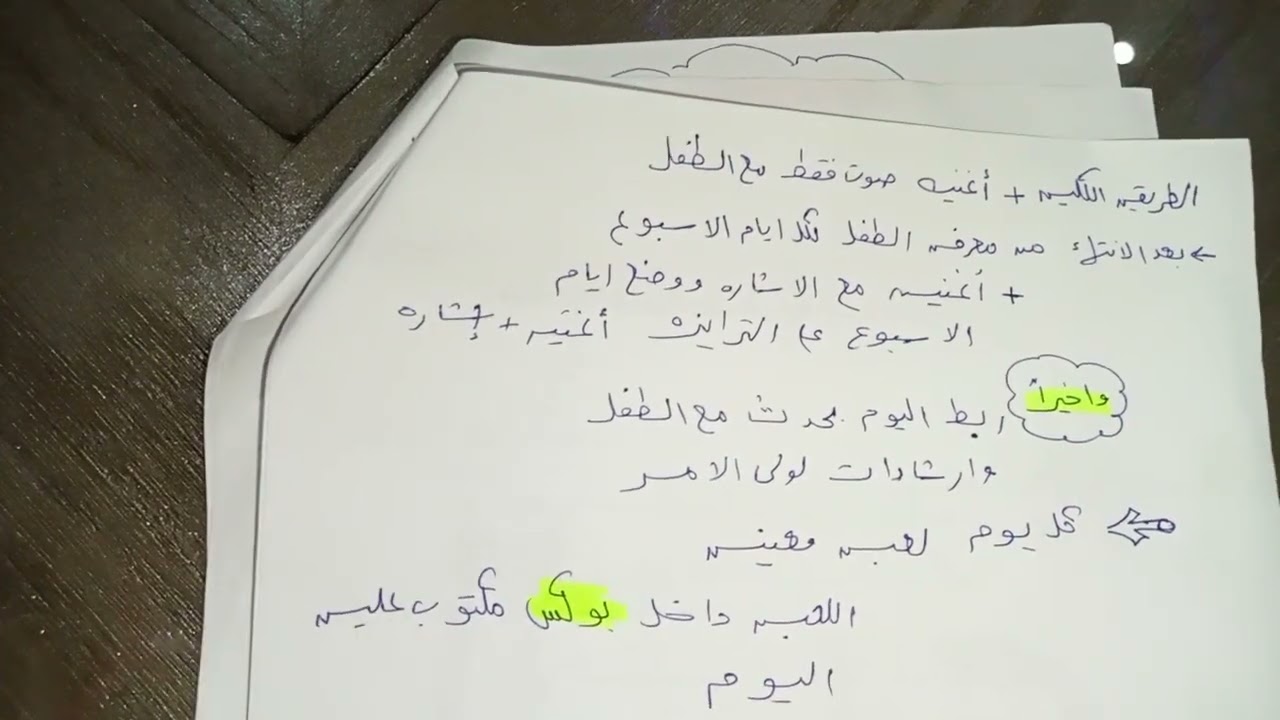 الطريقه الكليه + أغنيه صوت فقط مع الطفل
← بعد الانتهاء من معرفه الطفل كل ايام الاسبوع
+ أغنيه مع الاشاره ووضع ايام
الاسبوع ع الترابيزه أغنيه + إشاره
واخيراً ربط اليوم بحدث مع الطفل
وارشادات لولى الامر
كل يوم لعبه معينه
اللعبه داخل بوكس مكتوب عليه
اليوم